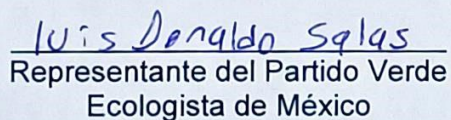 luis Donaldo Salas
Representante del Partido Verde
Ecologista de México